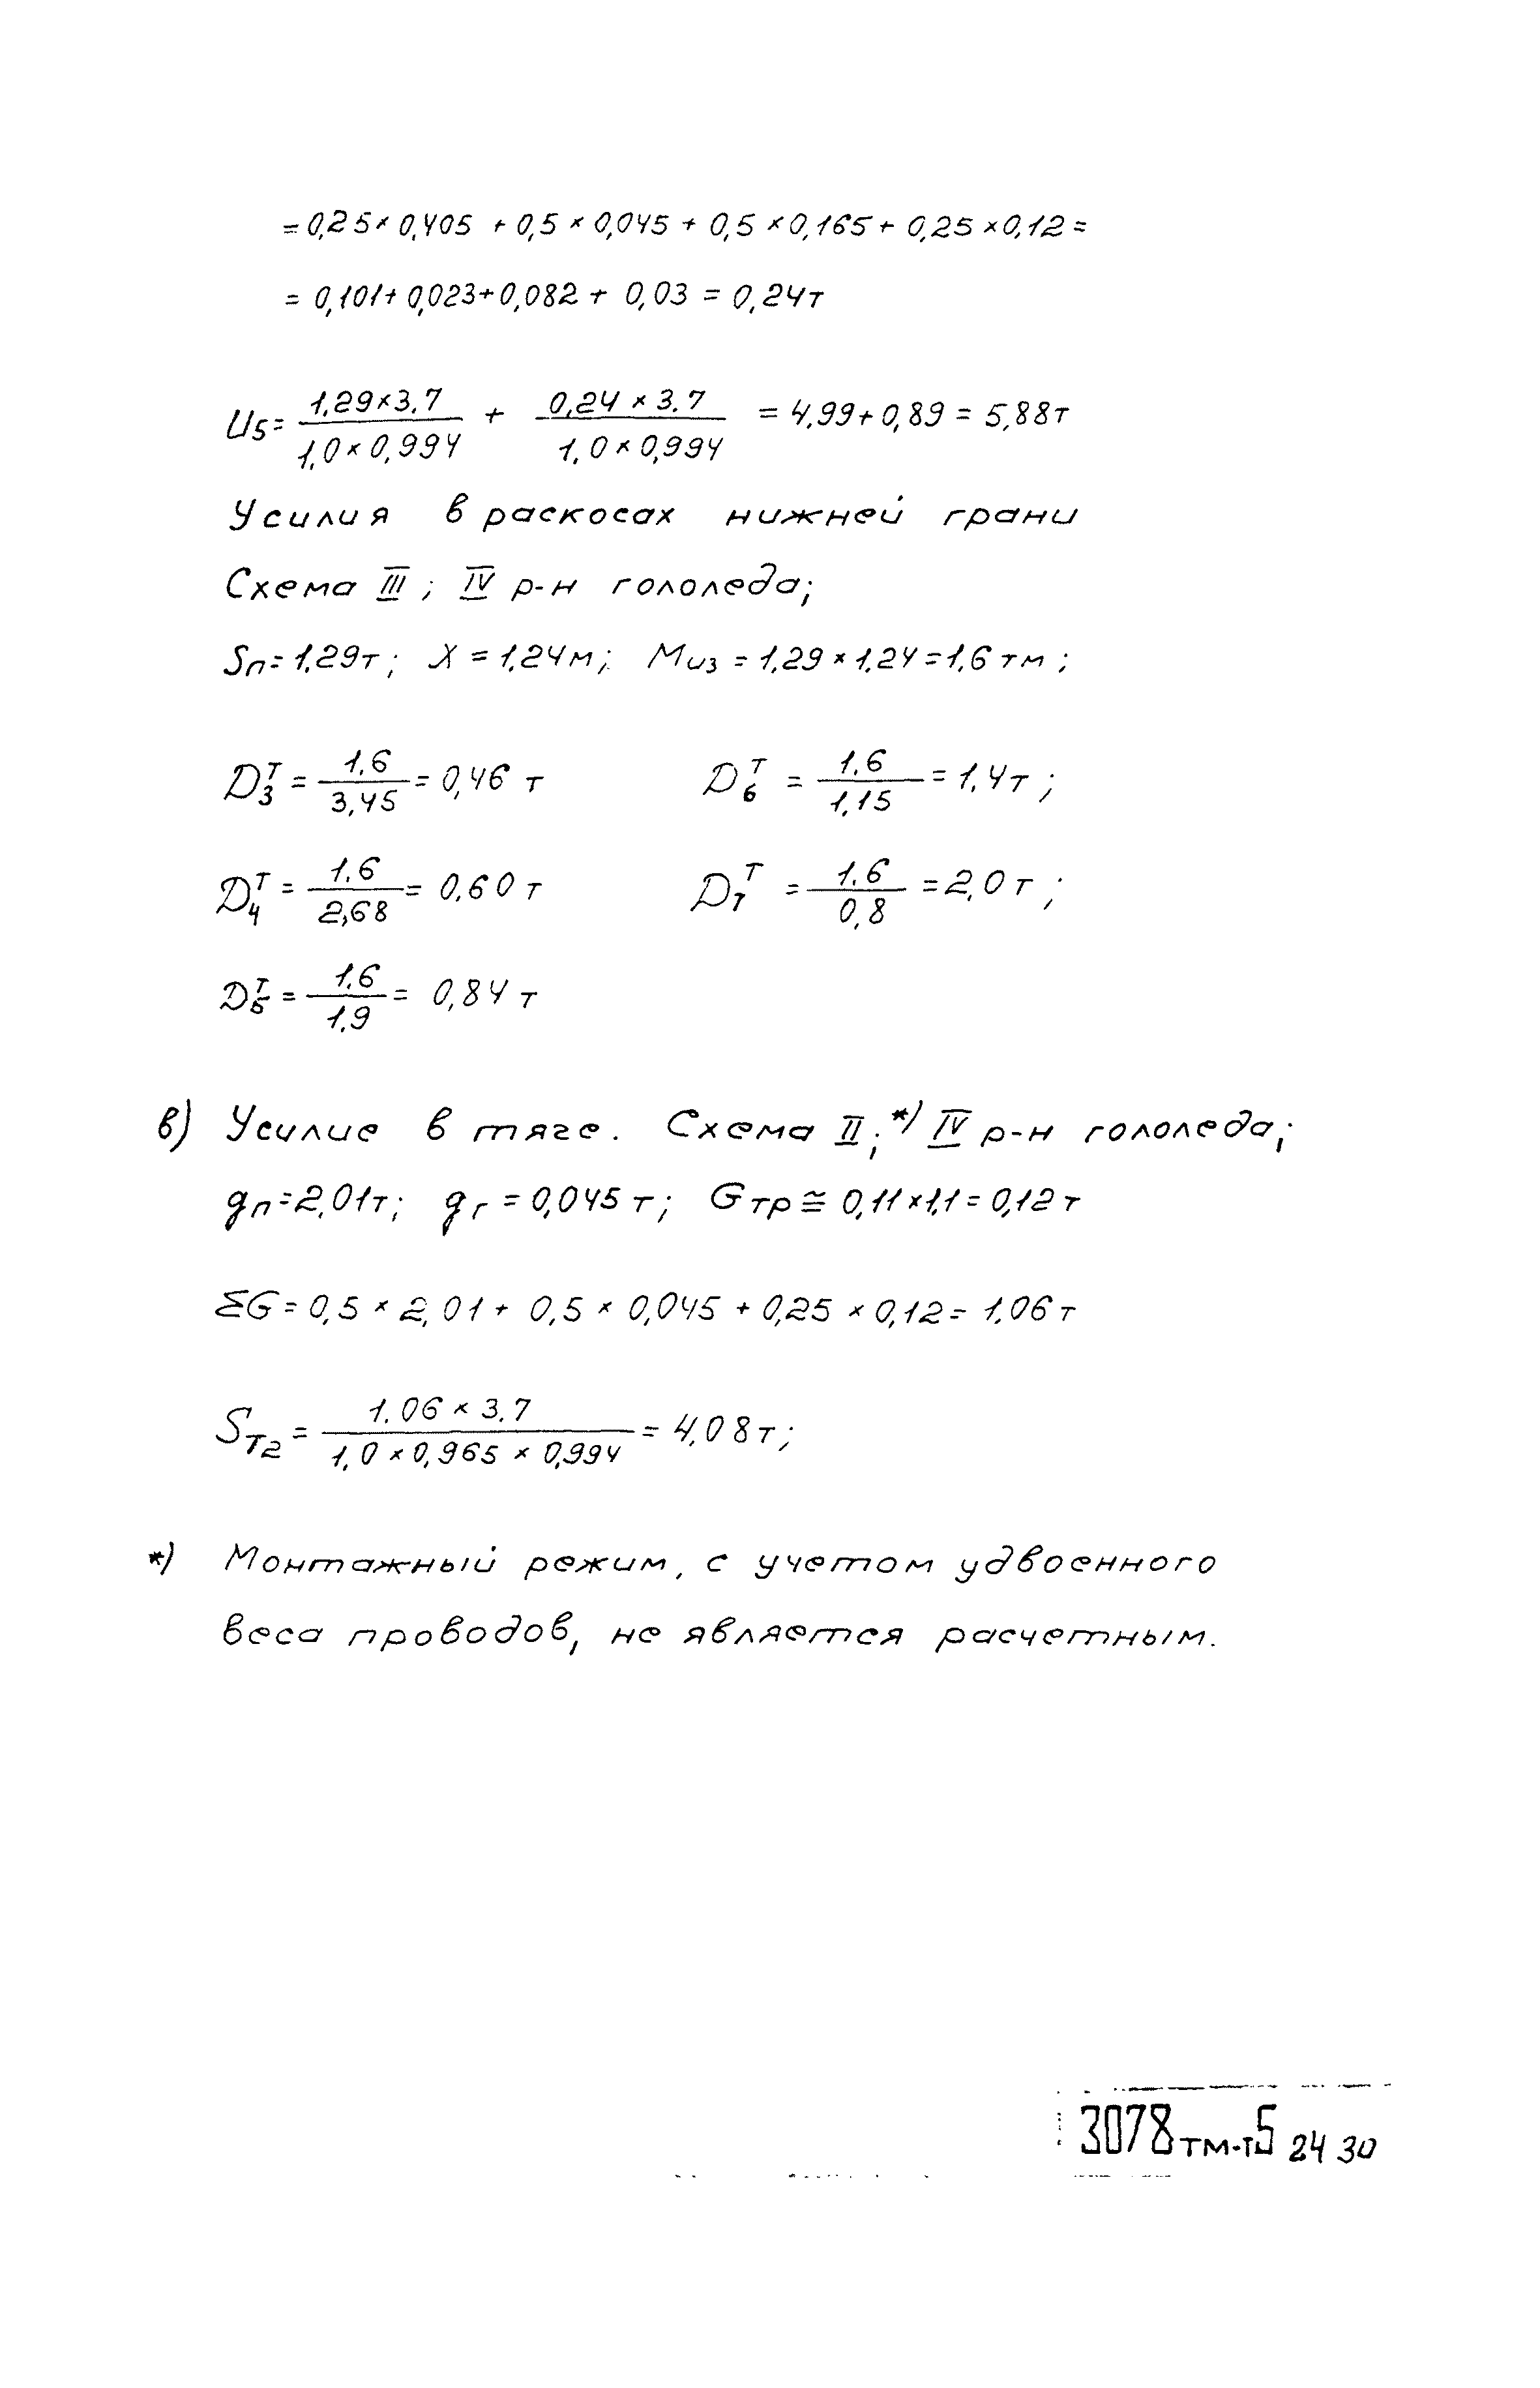 = 0,25 × 0,405 + 0,5 × 0,045 + 0,5 × 0,165 + 0,25 × 0,12 =
= 0,101 + 0,023 + 0,082 + 0,03 = 0,24т
U5 = 1,29×3,7 / 1,0 × 0,994 + 0,24 × 3,7 / 1,0 × 0,994 = 4,99 + 0,89 = 5,88т
Усилия в раскосах нижней грани
Схема III; IV р-н гололеда;
Sп = 1,29т; X = 1,24м; Mиз = 1,29 × 1,24 = 1,6 тм;
D3^т = 1,6 / 3,45 = 0,46 т D6^т = 1,6 / 1,15 = 1,4т;
D4^т = 1,6 / 2,68 = 0,60 т D7^т = 1,6 / 0,8 = 2,0 т;
D5^т = 1,6 / 1,9 = 0,84 т
в) Усилие в тяге. Схема II;*) IV р-н гололеда;
gп = 2,01т; gг = 0,045 т; Gтр ≅ 0,11×1,1 = 0,12 т
ΣG = 0,5 × 2,01 + 0,5 × 0,045 + 0,25 × 0,12 = 1,06 т
Sт2 = 1,06 × 3,7 / 1,0 × 0,965 × 0,994 = 4,08т;
*) Монтажный режим, с учетом удвоенного
веса проводов, не является расчетным.
3078тм-т5 24 30